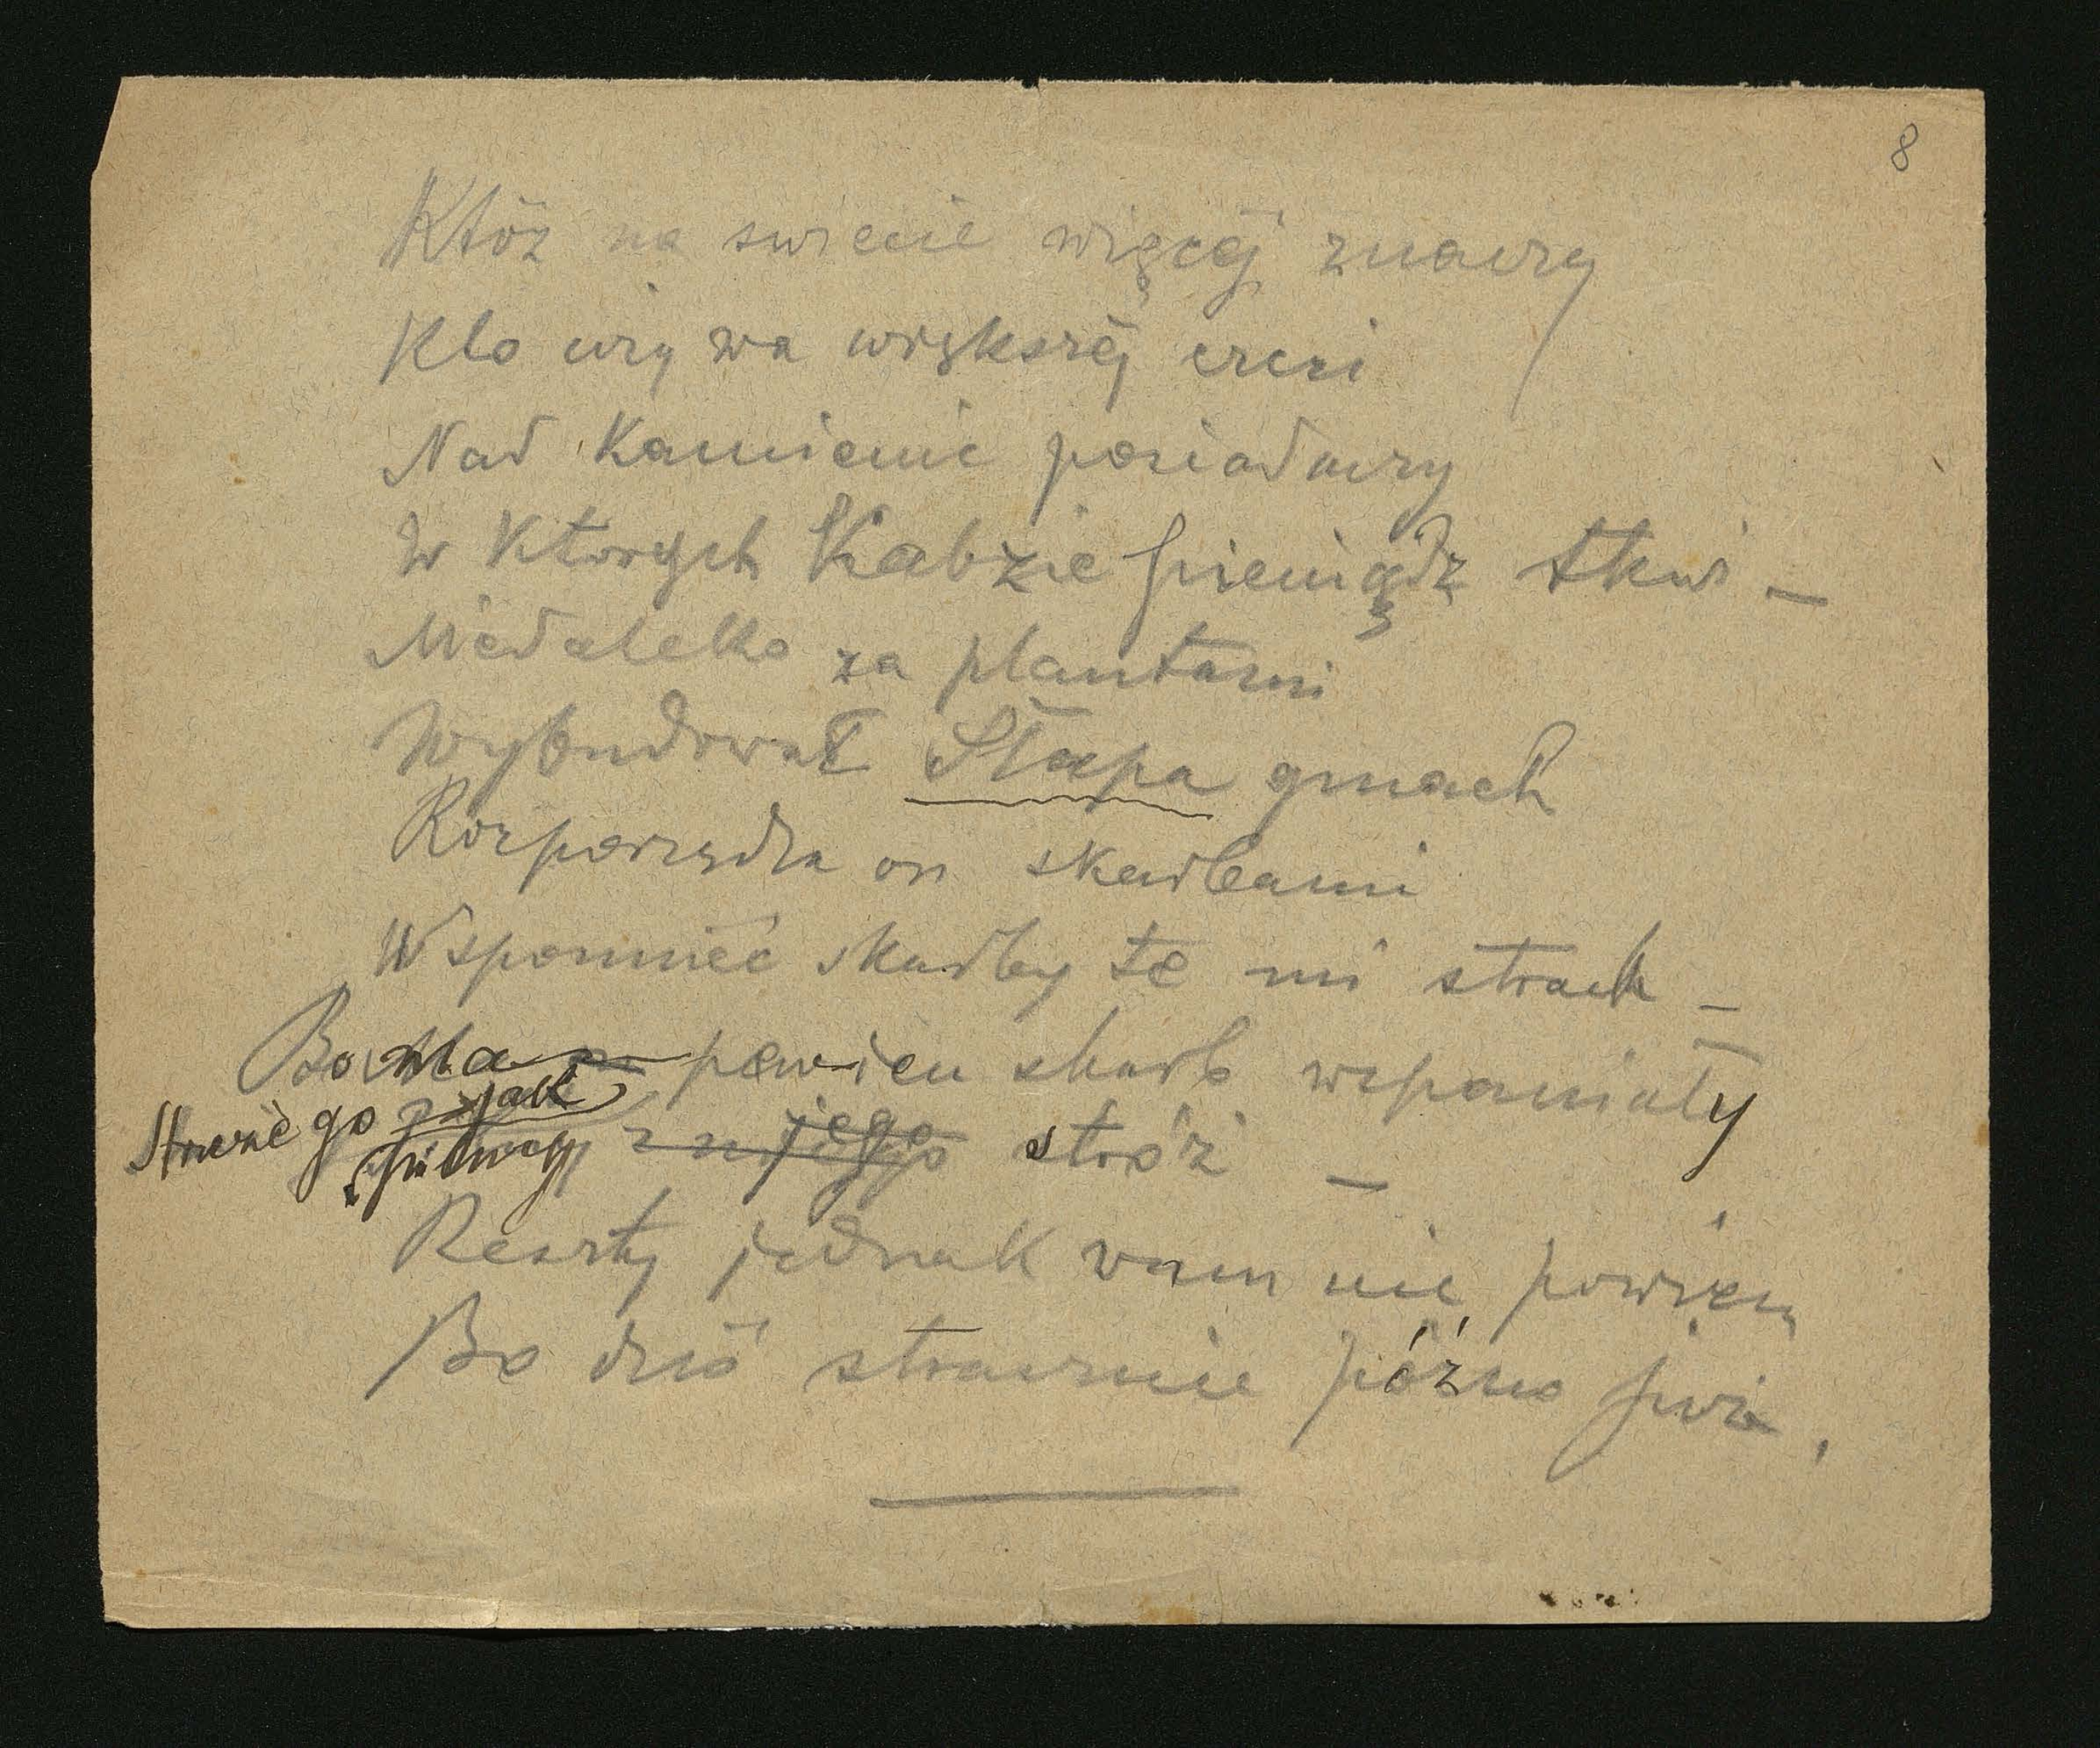 8
Któż na swiecie więcéj znaczy
Kto uzywa większéj czci
Nad Kamienic posiadaczy
W Ktorych Kabzie pieniądz tkwi –
Niedaleko za plantami
Wybudował Słapa gmach
Rozporządza on skarbami
Wspomnieć skarby te mi strach –
Bo Ma pewien skarb wspaniały
Strzeże go jak
piwnicy z niego stróż –
Reszty jednak wam nie powiem
Bo dziś strasznie późno już.